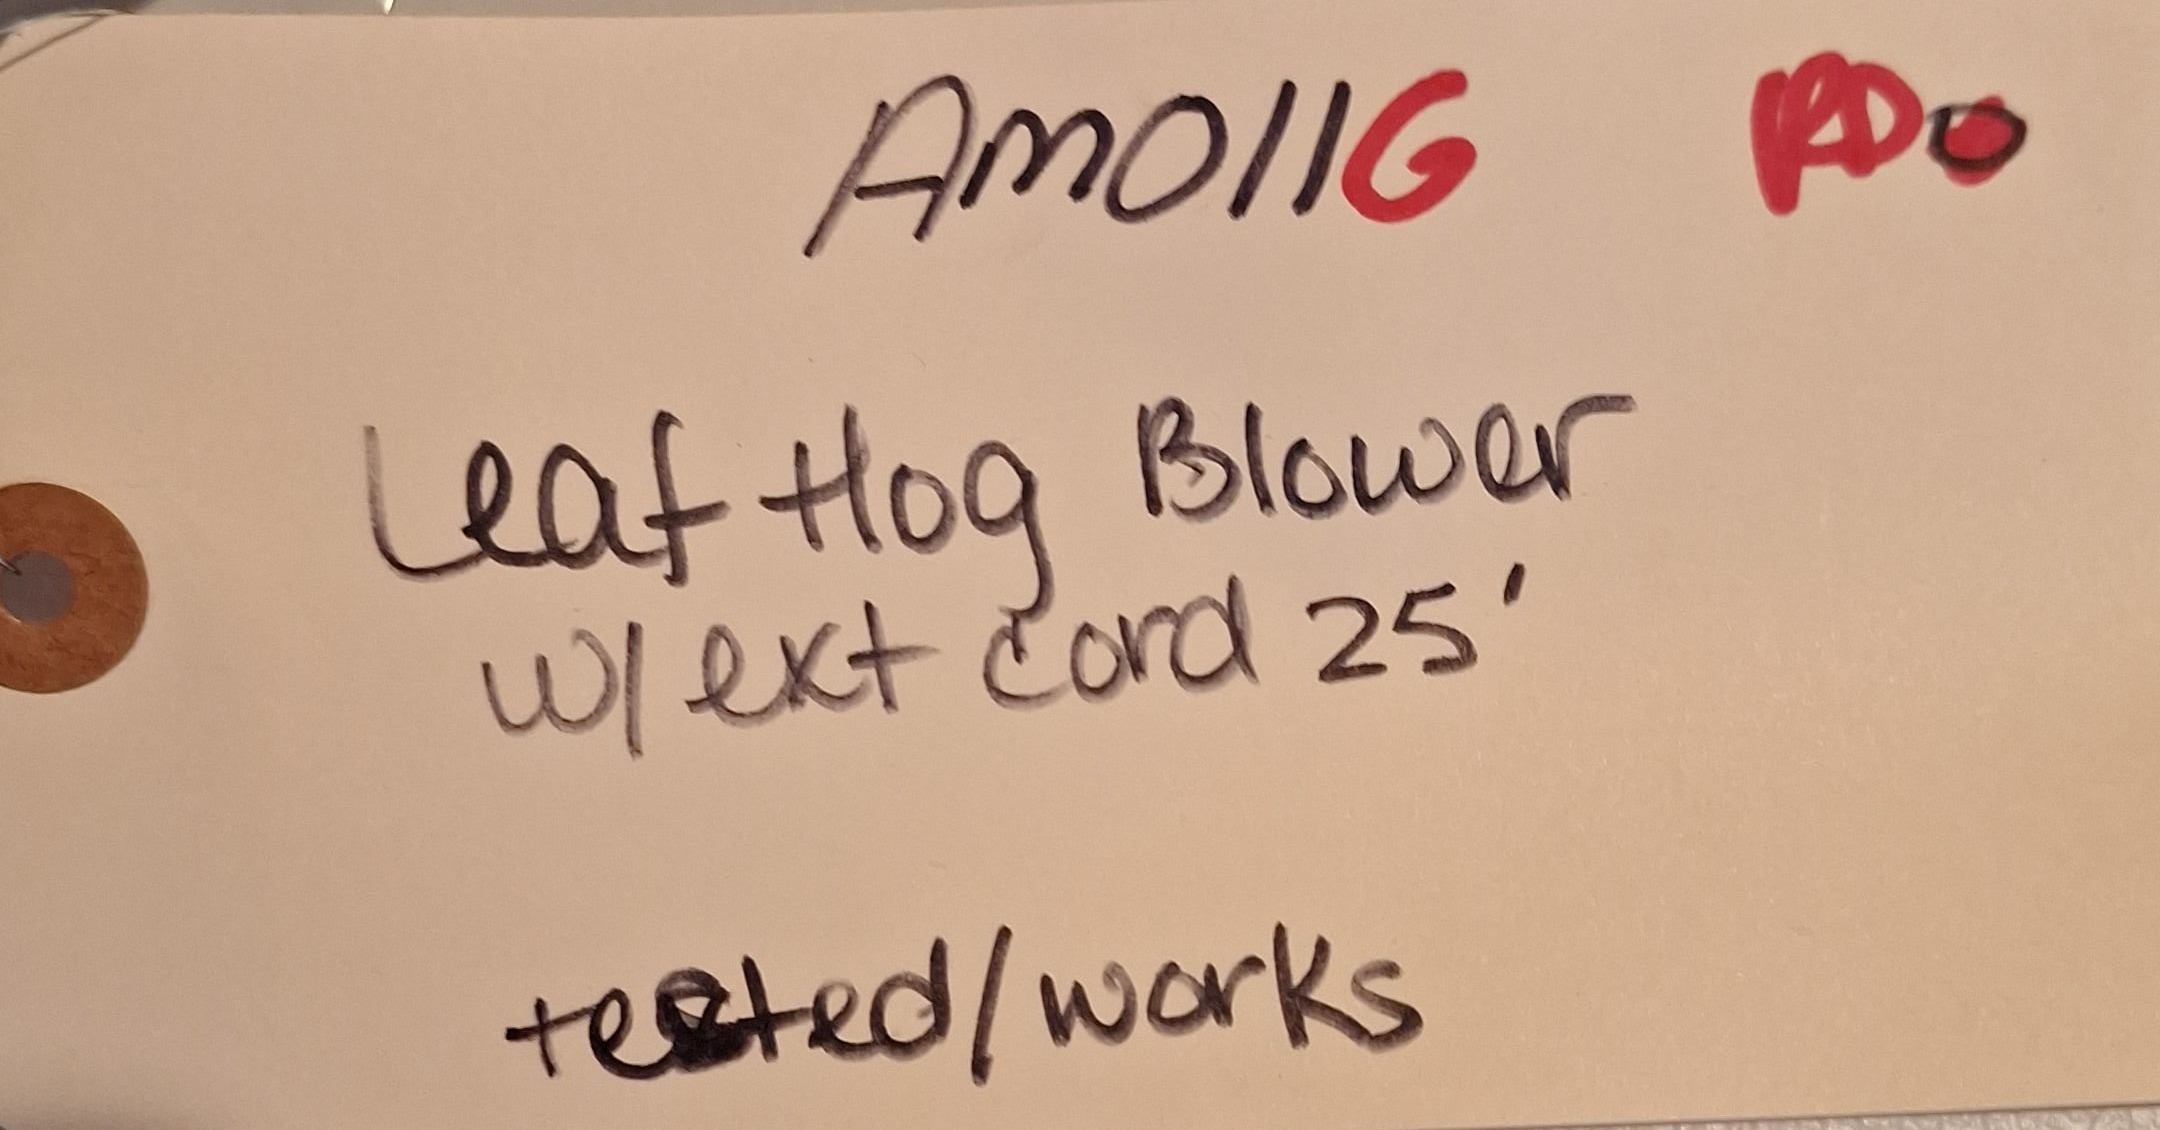 AM011G RDO
Leaf Hog Blower
w/ ext cord 25'
tested/works